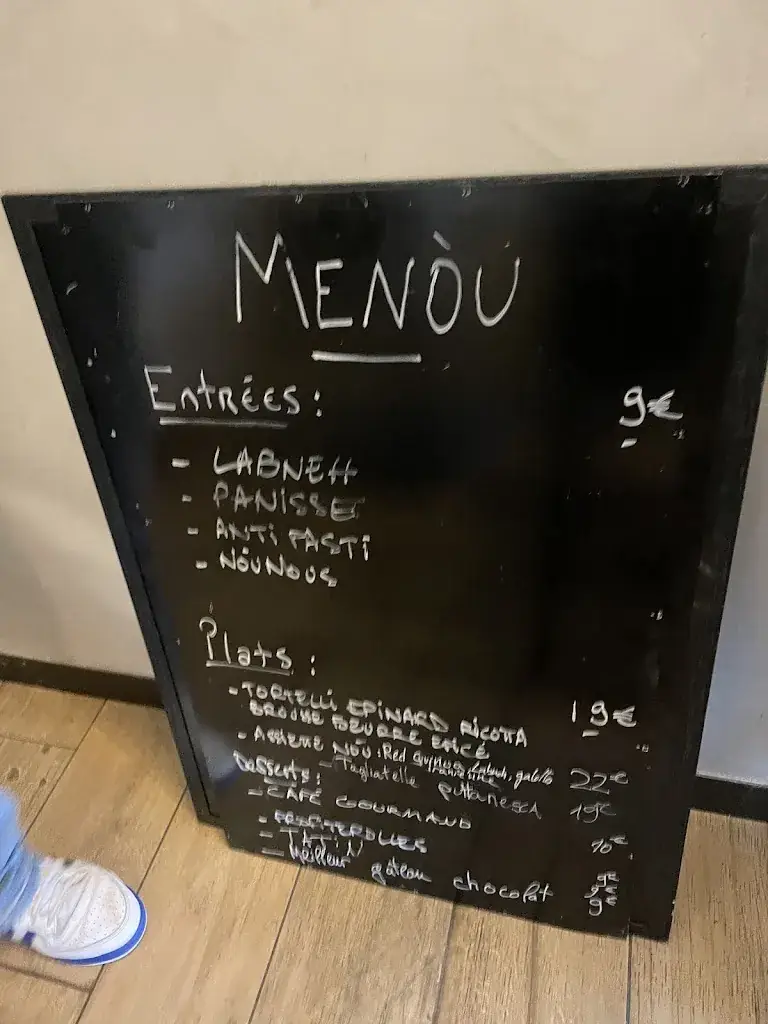 MENÒU
ENTRÉES : 9€
- LABNEH
- PANISSE
- ANTI PASTI
- NÒUNOUS
Plats :
- TORTELLI EPINARD RICOTTA 19€
BROUSSE BEURRE EPICÉ
- ASSIETTE NÒU : Red Quinoa, 22€
- Tagliatelle puttanesca 19€
Desserts :
- CAFÉ GOURMAND 10€
- PROFITEROLLES 9€
- TATIN 9€
- Meilleur gâteau chocolat 9€